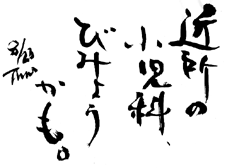 近所の
小児科、
びみょう
かも。
8/23
Thu.